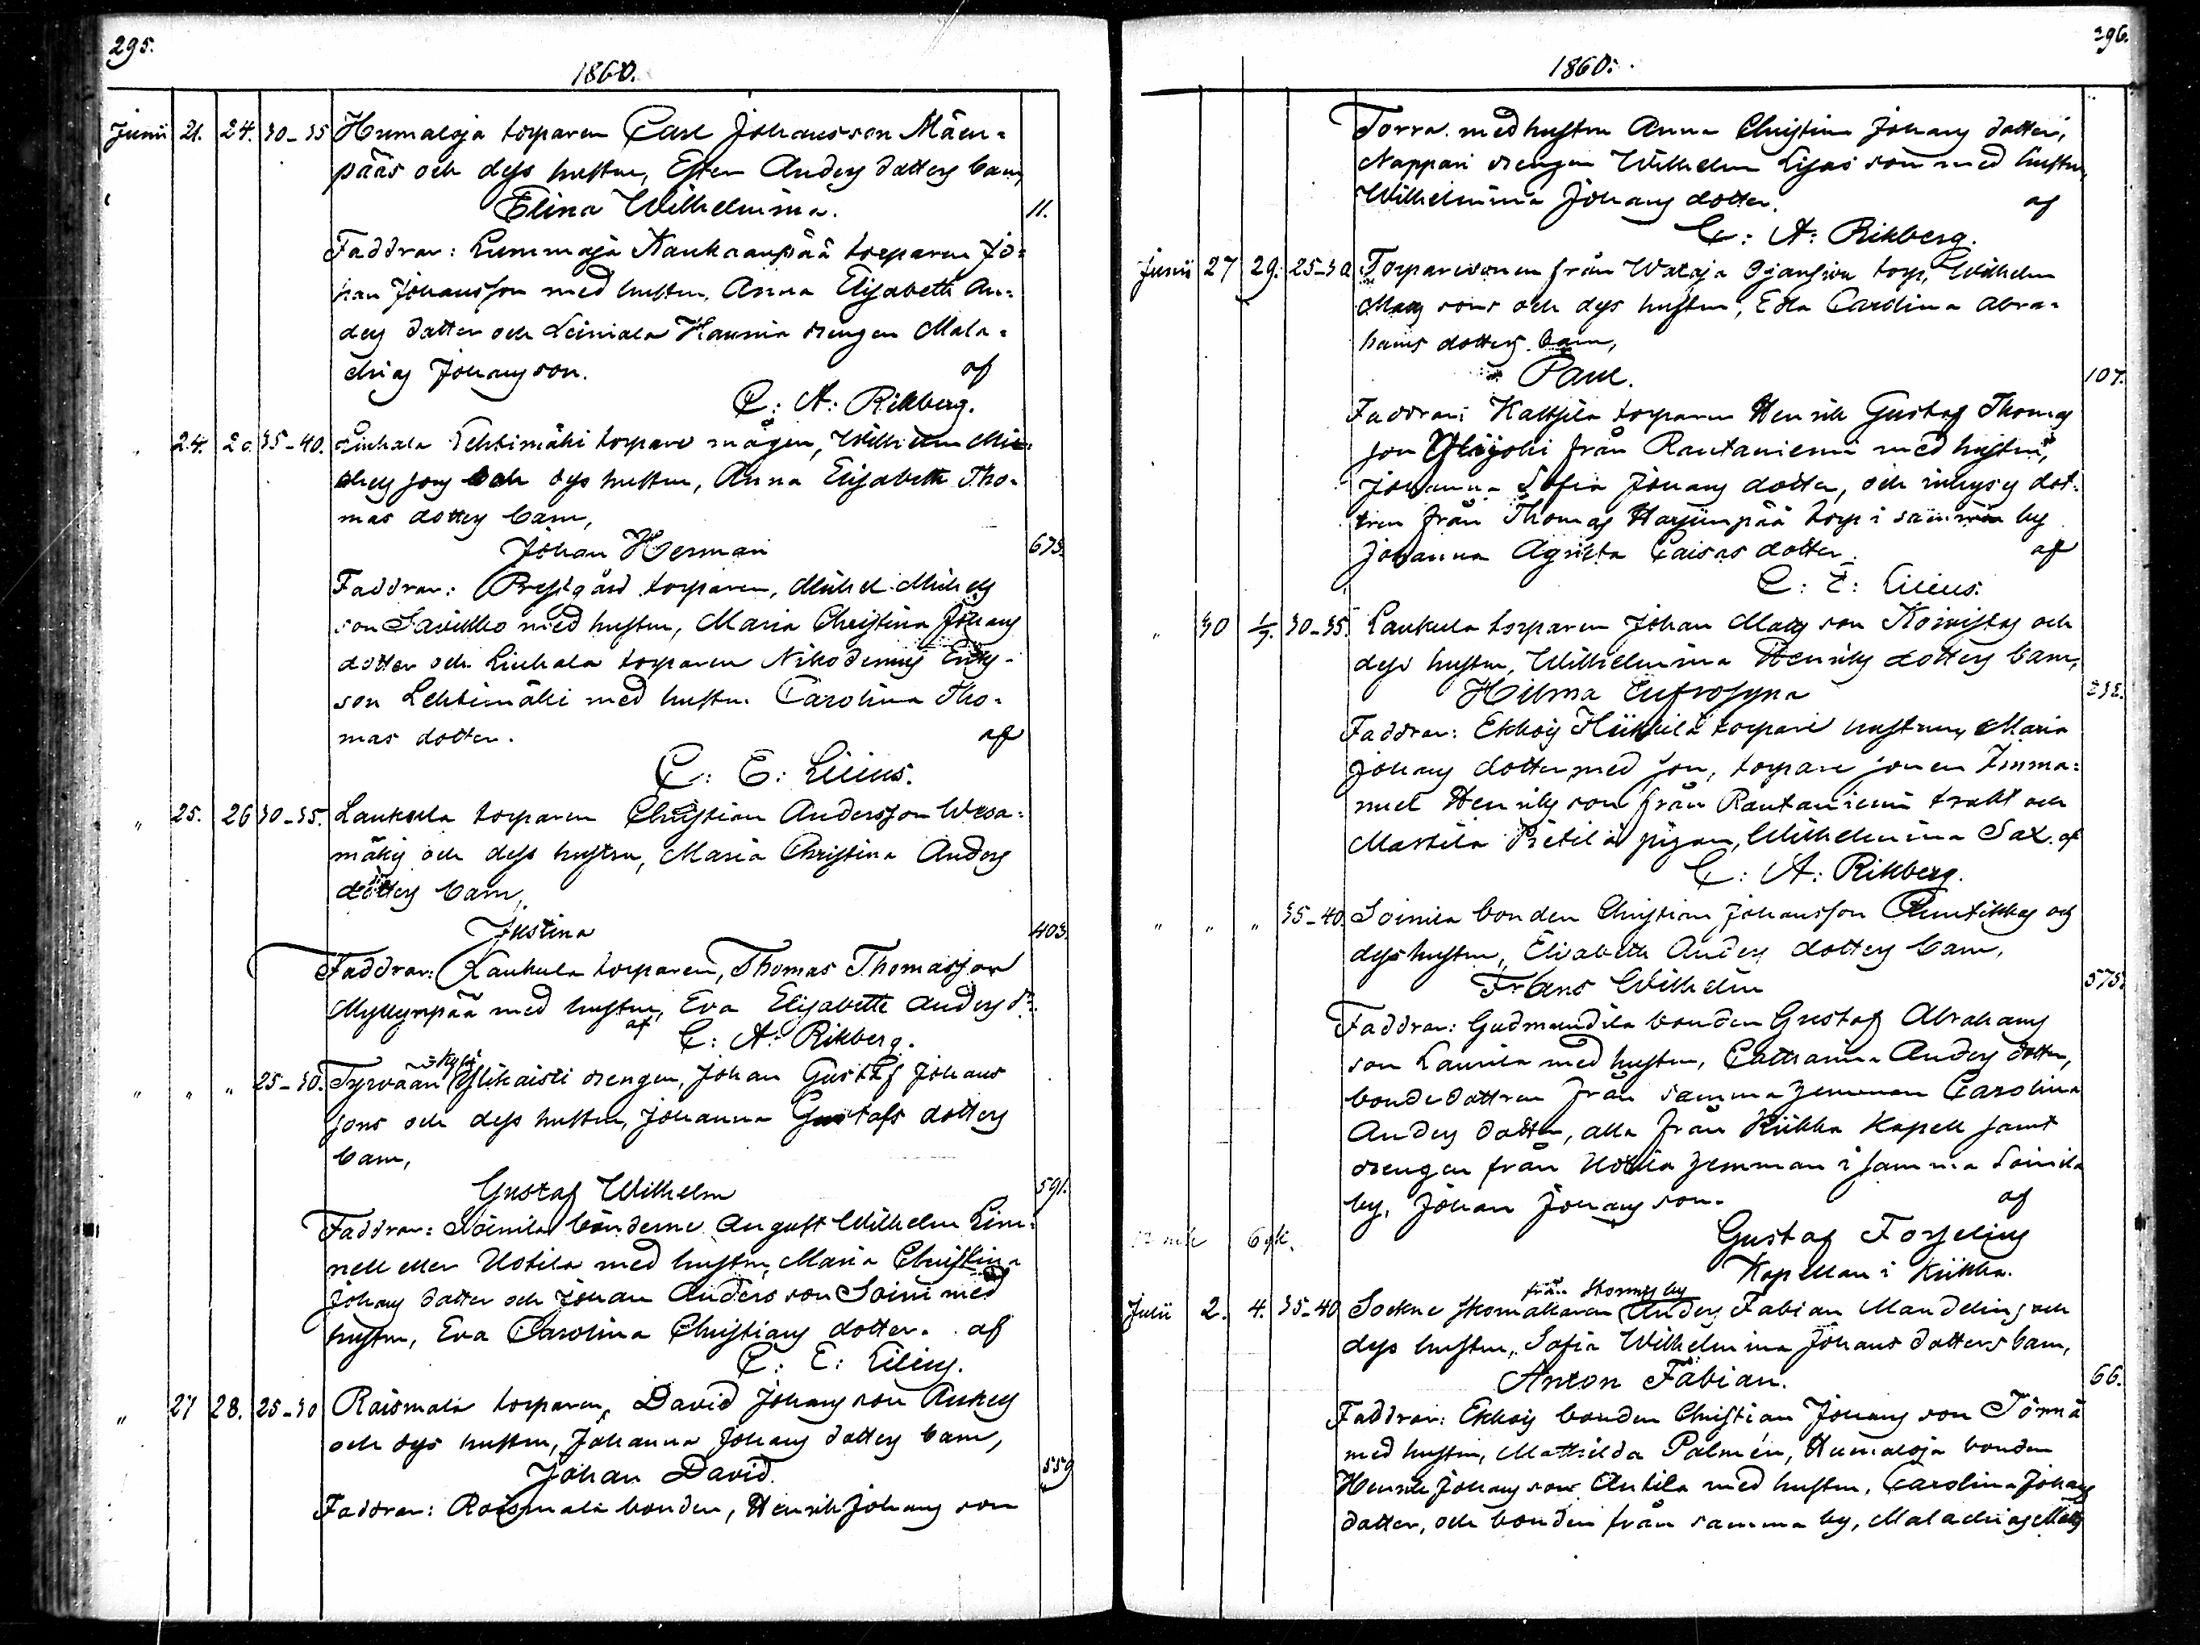 295.
1860.
Junii 21. 24. 30-35 Humaloja torparen Carl Johansson Mäen-
pääs och dess hustru, Ester Anders dotters barn,
Elina Wilhelmina. 11.
Faddrar: Lummaja Kaukaanpää torparen Jo-
han Johansson med hustru, Anna Elisabeth An-
ders dotter och Leiniala Haunia drengen Mala-
chias Johansson. af
C: A: Rikberg.
" 24. 35-40. Liuhala Lehtimäki torpare mågen, Wilhelm Mi-
chels sons och dess hustru, Anna Elisabeth Tho-
mas dotters barn,
Johan Herman 675.
Faddrar: Prestgård torparen, Michel Michels
son Savikko med hustru, Maria Christina Johans
dotter och Liuhala torparen Nikodemus Eriks-
son Lehtimäki med hustru Carolina Tho-
mas dotter. af
C: E: Lilius.
" 25. 26 30-35. Laukula torparen Christian Andersson Wesa-
mäkis och dess hustru, Maria Christina Anders
dotters barn,
Justina 403.
Faddrar: Laukula torparen, Thomas Thomasson
Myllynpää med hustru, Eva Elisabeth Anders dr.
af C: A: Rikberg.
" " " 25-30. Tyrvään Ylikaisti drengen, Johan Gustaf Johans
sons och dess hustru, Johanna Gustafs dotters
barn,
Gustaf Wilhelm 591.
Faddrar: Soinila bönderne August Wilhelm Lin-
nell eller Uotila med hustru, Maria Christina
Johans dotter och Johan Anders son Soini med
hustru, Eva Carolina Christians dotter. af
C: E: Lilius.
" 27 28. 25-30 Raismala torparen, David Johans son Ankes
och dess hustru, Johanna Johans dotters barn,
Johan David. 559
Faddrar: Raismala bonden, Henrik Johans son
296.
1860.
Torra med hustru Anna Christina Johans dotter,
Nappari drengen Wilhelm Elias son med hustru,
Wilhelmina Johans dotter. af
C: A: Rikberg.
Junii 27 29. 25-30. Torparesonen från Wataja Ojansivu torp, Wilhelm
Mats sons och dess hustru, Edla Carolina Abra-
hams dotters barn,
Paul. 107.
Faddrar: Kaltsila torparen Henrik Gustaf Thomas
son Ylijoki från Rautaniemi med hustru,
Johanna Sofia Johans dotter, och inhyses dot-
tren från Thomas Harjunpää torp i samma by
Johanna Agneta Caisas dotter. af
C: E: Lilius.
" 30 1/7. 30-35. Laukula torparen Johan Mats son Koivistos och
dess hustru, Wilhelmina Henriks dotters barn,
Hilma Eufrosyna
Faddrar: Ekkois Hiukkilä torpare hustrun, Maria
Johans dotter med son, torpare sonen Imma-
nuel Henriks son från Rautaniemi trakt och
Marttila Pietilä pigan, Wilhelmina Sax. af
C: A: Rikberg.
" " " 35-40. Soinila bonden Christian Johansson Runtikkas och
dess hustru, Elisabeth Anders dotters barn,
Frans Wilhelm 575.
Faddrar: Gudmundila bonden Gustaf Abrahams
son Laurila med hustru, Catharina Anders dotter,
bondedottren från samma hemman Carolina
Anders dotter, alla från Kiikka Kapell samt
drengen från Uotila hemman i samma Soinila
by, Johan Johans son. af
Gustaf Forselius
Kapellan i Kiikka.
från Stormis by
Julii 2. 4. 35-40 Sockne skomakaren Anders Fabian Mandelins och
dess hustru, Sofia Wilhelmina Johans dotters barn,
Anton Fabian. 66.
Faddrar: Ekkois bonden Christian Johans son Törmä
med hustru, Mathilda Palmén, Humaloja bonden
Henrik Johans son Antila med hustru, Carolina Johans
dotter, och bonden från samma by, Malachias Mats